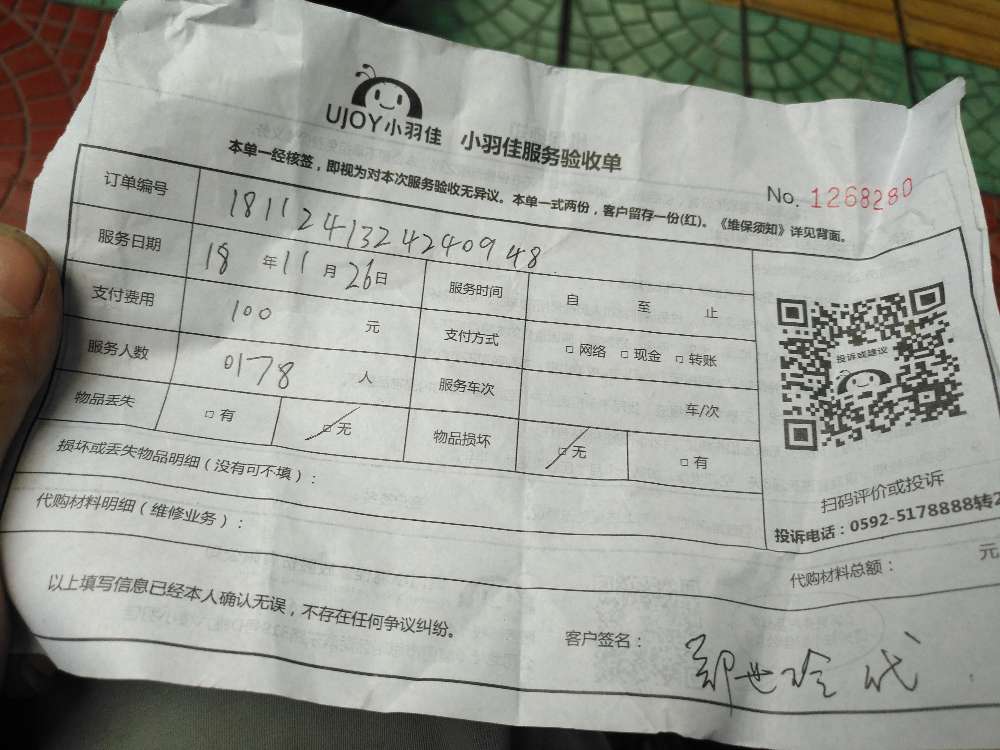 UJOY小羽佳 小羽佳服务验收单
本单一经核签，即视为对本次服务验收无异议。本单一式两份，客户留存一份(红)。《维保须知》详见背面。
No. 1268280
订单编号 181124132424240948
服务日期 18 年 11 月 26 日 服务时间 自 至 止
支付费用 100 元 支付方式 □ 网络 □ 现金 □ 转账
服务人数 0178 人 服务车次 车/次
物品丢失 □ 有 □ 无 物品损坏 □ 无 □ 有
投诉或建议
扫码评价或投诉
投诉电话：0592-5178888转2
损坏或丢失物品明细（没有可不填）：
代购材料明细（维修业务）：
代购材料总额： 元
以上填写信息已经本人确认无误，不存在任何争议纠纷。
客户签名： 郑世玲 代